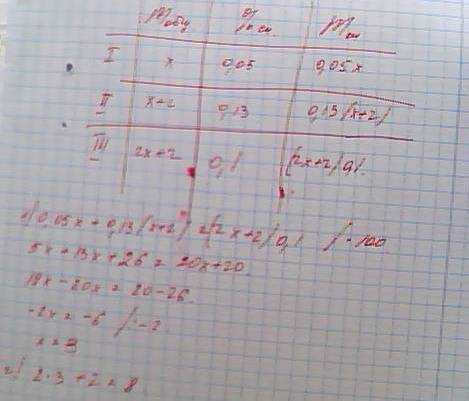 m общ % m
I x 0,05 0,05x
II x+2 0,13 0,13(x+2)
III 2x+2 0,1 (2x+2)0,1
1) 0,05x + 0,13(x+2) = (2x+2)0,1 /·100
5x + 13x + 26 = 20x + 20
18x - 20x = 20 - 26
-2x = -6 /:-2
x = 3
2) 2·3 + 2 = 8